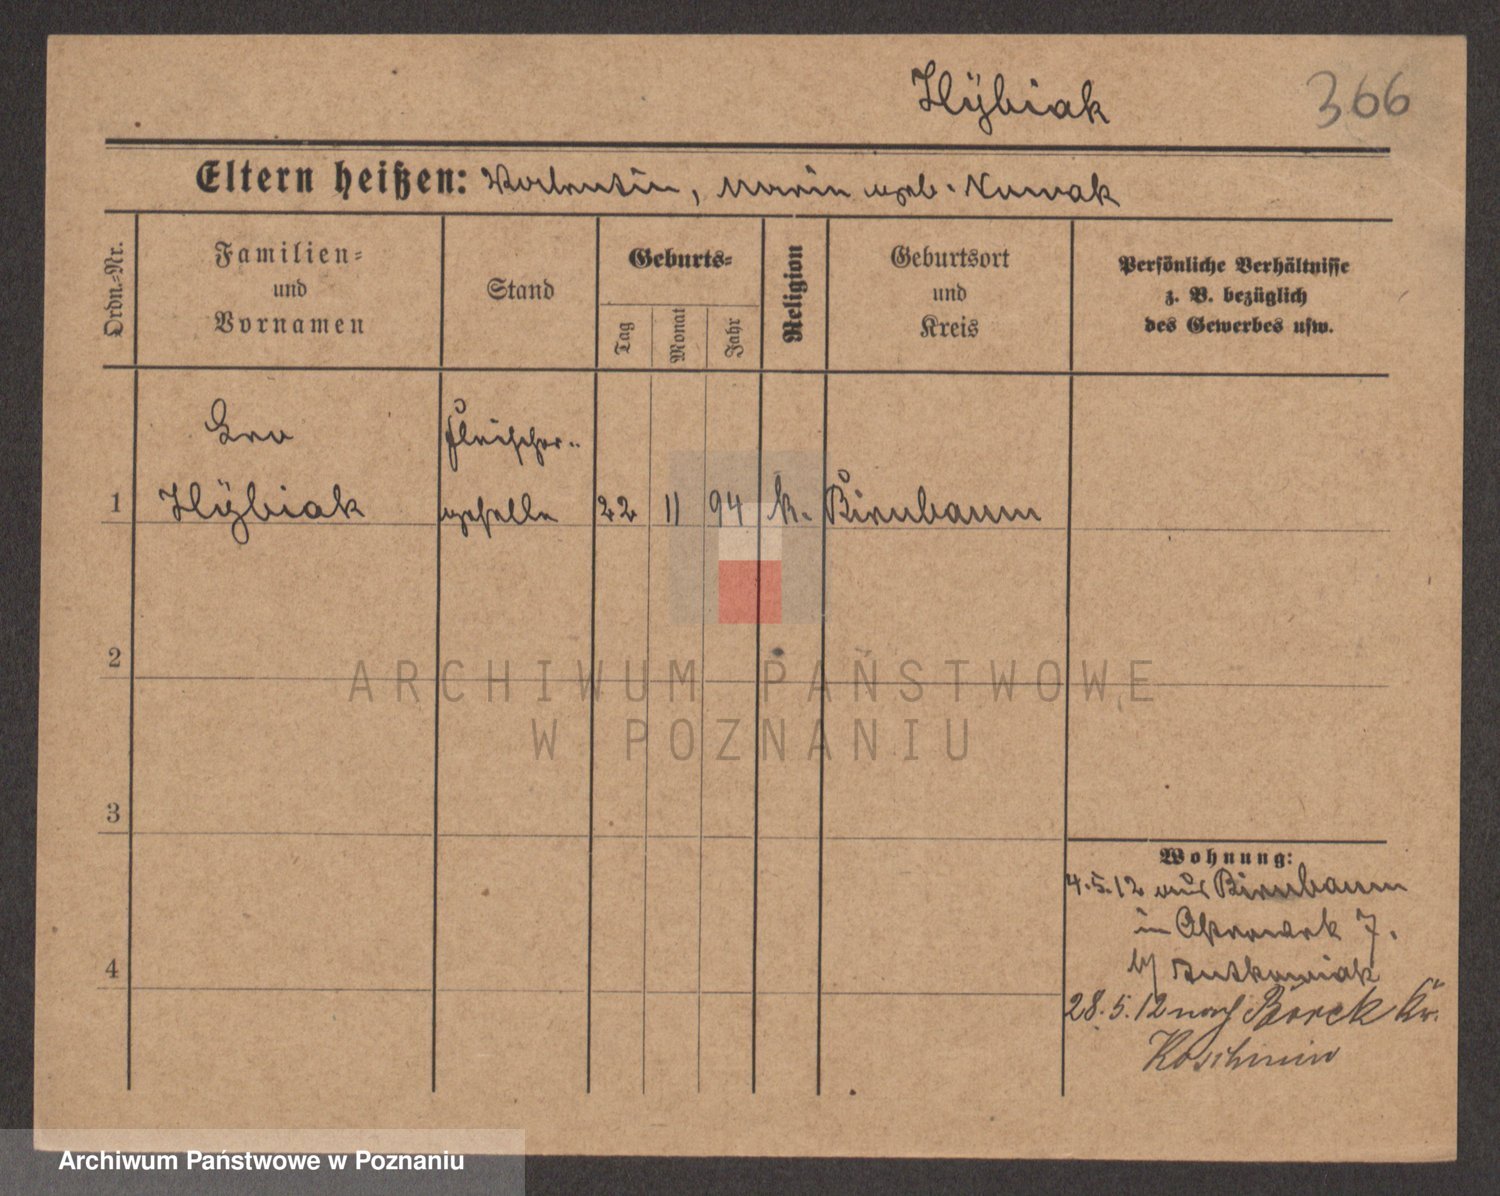 Hÿbiak 366
Eltern heißen: Valentin, Maria geb. Nowak
Ordn.-Nr.
Familien-
und
Vornamen
Stand
Geburts-
Tag
Monat
Jahr
Religion
Geburtsort
und
Kreis
Persönliche Verhältnisse
z. B. bezüglich
des Gewerbes usw.
Leo Fleischer-
1 Hÿbiak geselle 22 11 94 k. Birnbaum
2
3
4
Wohnung:
4.5.12 aus Birnbaum
in 7.
b/
28.5.12 nach Borek Kr.
Koschmin
ARCHIWUM PAŃSTWOWE
W POZNANIU
Archiwum Państwowe w Poznaniu